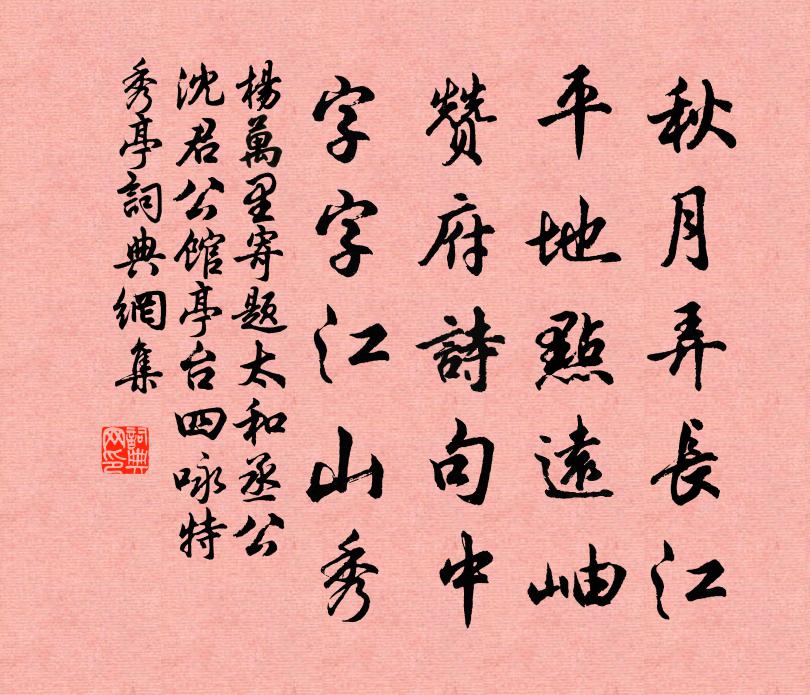 秋月弄長江
平地點遠岫
贊府詩句中
字字江山秀
楊萬里寄題太和丞公
沈君公館亭台四咏特
秀亭詞典網集
詞典
网印